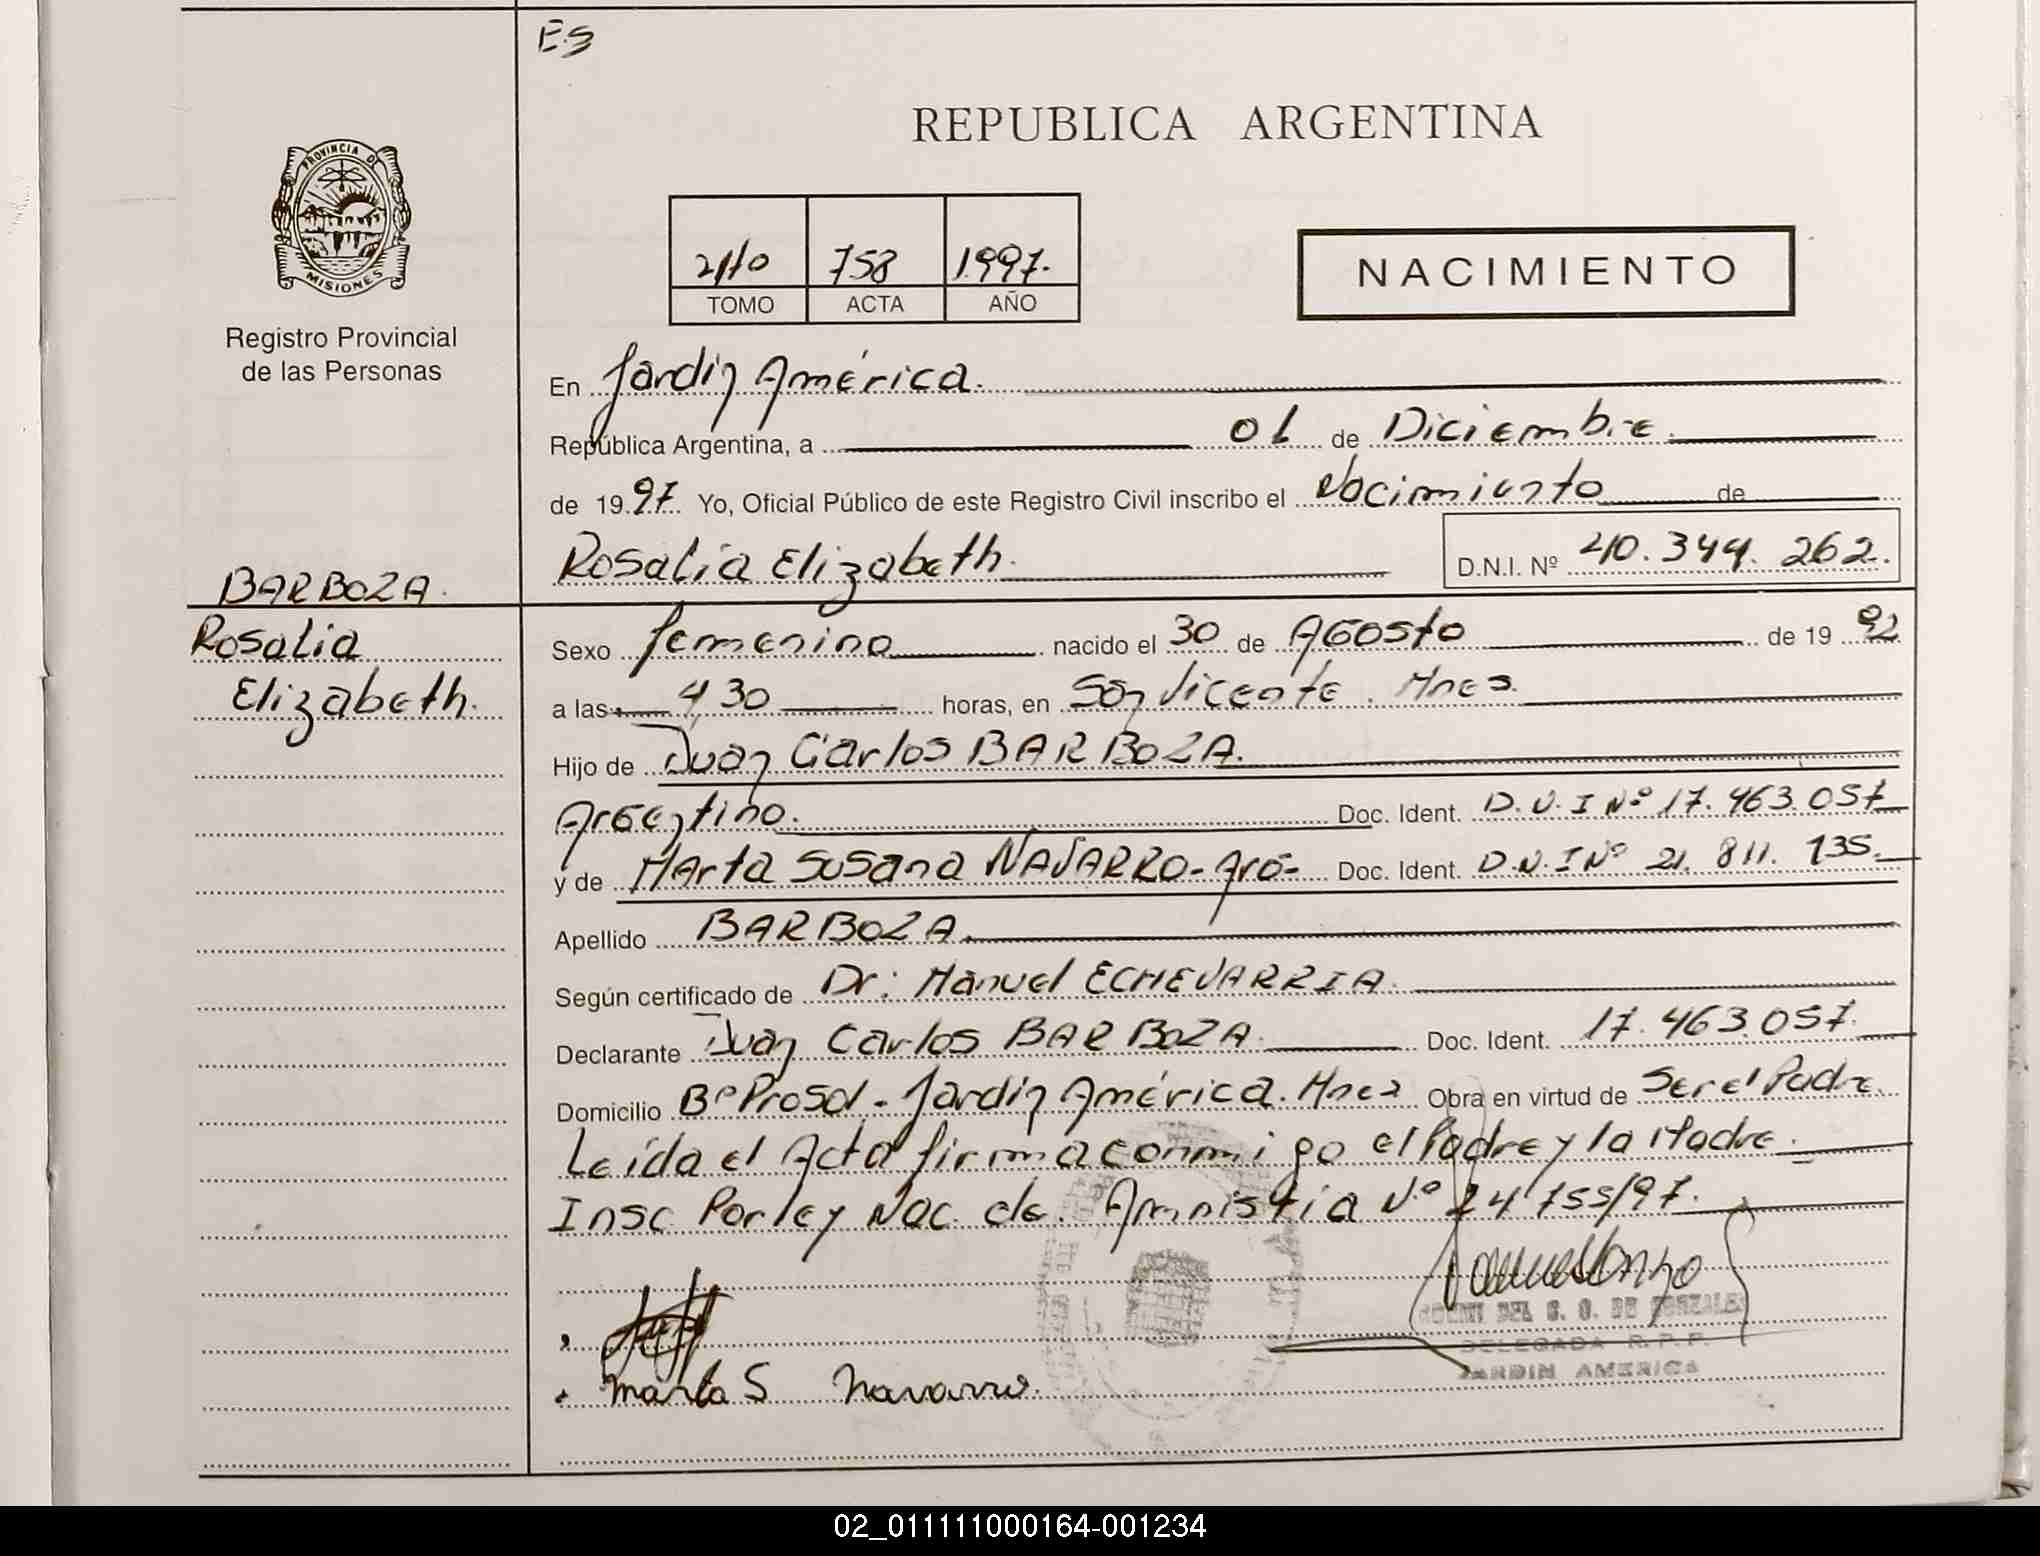 ES
REPUBLICA ARGENTINA
PROVINCIA DE
MISIONES
Registro Provincial
de las Personas
758 1997.
TOMO ACTA AÑO
NACIMIENTO
En Jardín América.
República Argentina, a 01 de Diciembre.
de 1997. Yo, Oficial Público de este Registro Civil inscribo el Nacimiento de
Rosalía Elizabeth. D.N.I. Nº 40.344.262.
BARBOZA.
Rosalia
Elizabeth.
Sexo femenino nacido el 30 de Agosto de 19 92
a las 4,30 horas, en San Vicente. Mnes.
Hijo de Juan Carlos BARBOZA.
Argentino. Doc. Ident. D.N.I Nº 17.463.057
y de Marta Susana NAVARRO- Arg- Doc. Ident. D.N.I Nº 21.811.135.
Apellido BARBOZA.
Según certificado de Dr: Manuel ECHEVARRIA.
Declarante Juan Carlos BARBOZA. Doc. Ident. 17.463.057.
Domicilio Bº Prosol - Jardín América. Mnes Obra en virtud de Ser el Padre.
Leída el Acta firma conmigo el Padre y la Madre.
Insc Por ley Nac. de. Amnistia Nº 24755/97.
DEL C. G. DE GONZALEZ
DELEGADA R.P.P.
JARDIN AMERICA
Marta S Navarro.
02_011111000164-001234